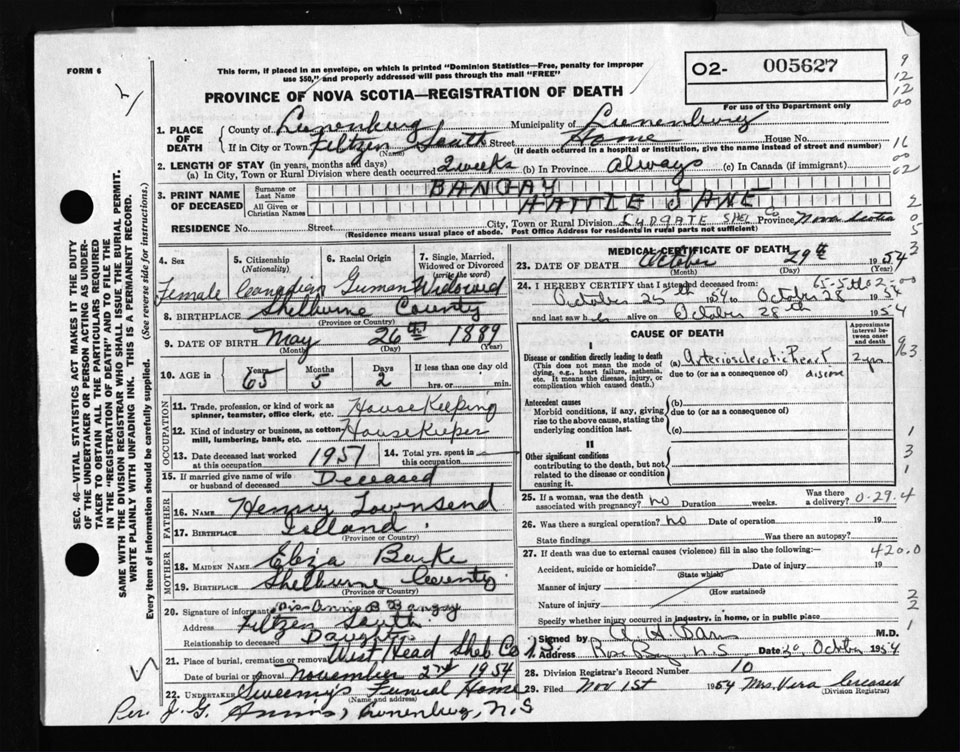 FORM 6
This form, if placed in an envelope, on which is printed "Dominion Statistics—Free, penalty for improper
use $50," and properly addressed will pass through the mail "FREE"
PROVINCE OF NOVA SCOTIA—REGISTRATION OF DEATH
O2- 005627
For use of the Department only
9
12
12
00
16
00
02
2
0
5
3
963
1
3
1
2
2
1
SEC. 46—VITAL STATISTICS ACT MAKES IT THE DUTY
OF THE UNDERTAKER OR PERSON ACTING AS UNDER-
TAKER TO OBTAIN ALL THE PARTICULARS REQUIRED
IN THE "REGISTRATION OF DEATH" AND TO FILE THE
SAME WITH THE DIVISION REGISTRAR WHO SHALL ISSUE THE BURIAL PERMIT.
WRITE PLAINLY WITH UNFADING INK. THIS IS A PERMANENT RECORD.
Every item of information should be carefully supplied. (See reverse side for instructions.)
1. PLACE OF DEATH
County of Lunenburg Municipality of Lunenburg
If in City or Town Feltzen South Street Home House No.
(Name) (If death occurred in a hospital or institution, give the name instead of street and number)
2. LENGTH OF STAY (in years, months and days)
(a) In City, Town or Rural Division where death occurred 2 weeks (b) In Province Always (c) In Canada (if immigrant)
3. PRINT NAME OF DECEASED
Surname or Last Name BANGAY
All Given or Christian Names HATTIE JANE
RESIDENCE No. Street City, Town or Rural Division LYDGATE SHEL Co Province Nova Scotia
(Residence means usual place of abode. Post Office Address for residents in rural parts not sufficient)
4. Sex
5. Citizenship (Nationality)
6. Racial Origin
7. Single, Married, Widowed or Divorced (write the word)
Female Canadian German Widowed
8. BIRTHPLACE Shelburne County
(Province or Country)
9. DATE OF BIRTH May 26th 1889
(Month) (Day) (Year)
10. AGE in Years 65 Months 5 Days 2 If less than one day old
hrs. or min.
OCCUPATION
11. Trade, profession, or kind of work as spinner, teamster, office clerk, etc. House Keeping
12. Kind of industry or business, as cotton mill, lumbering, bank, etc. House Keeper
13. Date deceased last worked at this occupation 1951 14. Total yrs. spent in this occupation
15. If married give name of wife or husband of deceased Deceased
FATHER
16. NAME Henry Townsend
17. BIRTHPLACE Island
(Province or Country)
MOTHER
18. MAIDEN NAME Eliza
19. BIRTHPLACE Shelburne County
(Province or Country)
20. Signature of informant Annie B Bangay
Address Feltzen South
Relationship to deceased Daughter
21. Place of burial, cremation or removal West Head Shelb Co N.S.
Date of burial or removal November 2nd 1954
22. UNDERTAKER Sweeny's Funeral Home
Per. J. G. Lunenburg, N.S
MEDICAL CERTIFICATE OF DEATH
23. DATE OF DEATH October 29th 1954
(Month) (Day) (Year)
24. I HEREBY CERTIFY that I attended deceased from: 65-5 2-00
October 25th 1954 to October 28 1954
and last saw her alive on October 28th 1954
CAUSE OF DEATH
Approximate interval between onset and death
I
Disease or condition directly leading to death
(This does not mean the mode of dying, e.g., heart failure, asthenia, etc. It means the disease, injury, or complication which caused death.)
(a) Arteriosclerotic heart disease 2 yrs
due to (or as a consequence of)
Antecedent causes
Morbid conditions, if any, giving rise to the above cause, stating the underlying condition last.
(b)
due to (or as a consequence of)
(c)
II
Other significant conditions
contributing to the death, but not related to the disease or condition causing it.
25. If a woman, was the death associated with pregnancy? no Duration weeks. Was there a delivery? 0-29.4
26. Was there a surgical operation? no Date of operation 19
State findings Was there an autopsy?
27. If death was due to external causes (violence) fill in also the following:— 420.0
Accident, suicide or homicide? Date of injury 19
(State which)
Manner of injury
(How sustained)
Nature of injury
Specify whether injury occurred in industry, in home, or in public place
Signed by M.D.
Address Rose Bay N.S Date 30 October 1954
28. Division Registrar's Record Number 10
29. Filed Nov 1st 1954 Mrs. Vera Creaser
(Division Registrar)